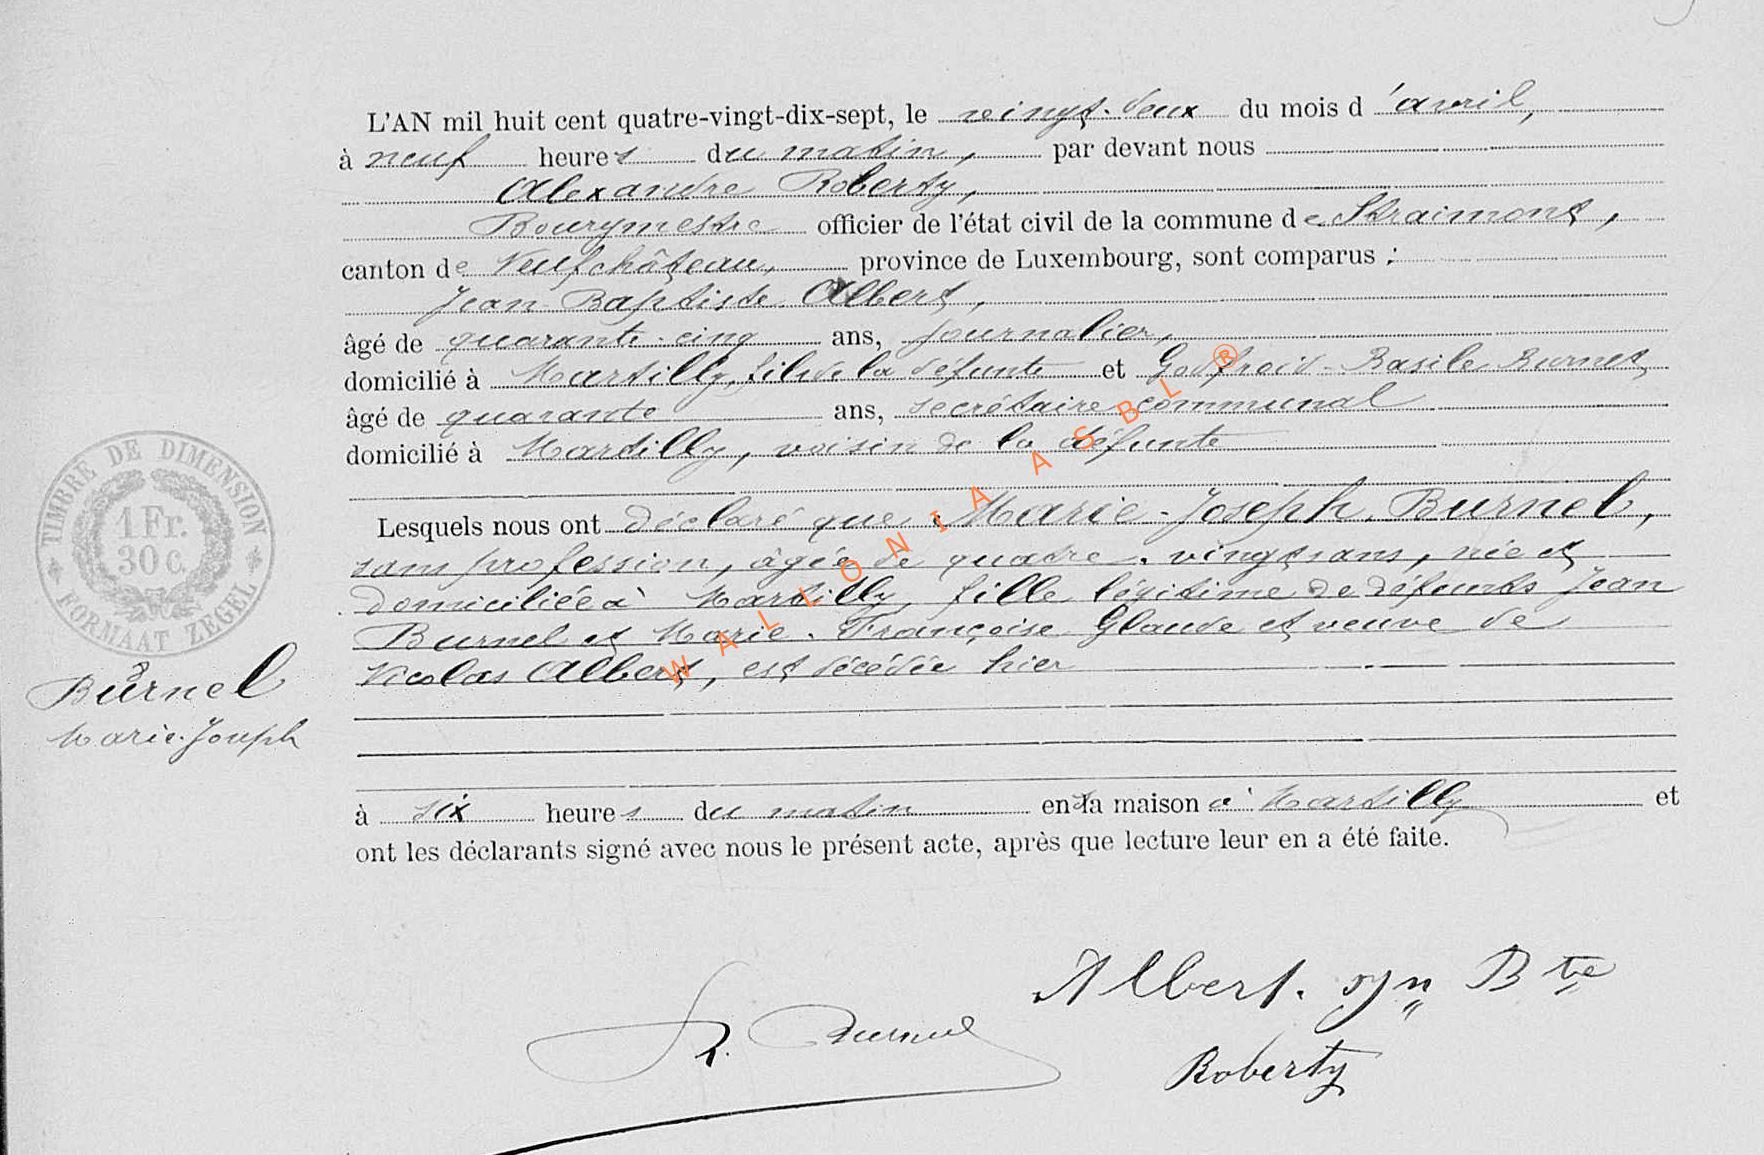 L'AN mil huit cent quatre-vingt-dix-sept, le vingt-deux du mois d'avril,
à neuf heures du matin, par devant nous
Alexandre Roberty,
Bourgmestre officier de l'état civil de la commune de Straimont,
canton de Neufchâteau, province de Luxembourg, sont comparus :
Jean-Baptiste Albert,
âgé de quarante-cinq ans, journalier,
domicilié à Martilly, fils de la défunte et Godfroid-Basile Burnel,
âgé de quarante ans, secrétaire communal
domicilié à Martilly, voisin de la défunte
Lesquels nous ont déclaré que Marie-Joseph Burnel,
sans profession, âgée de quatre-vingts ans, née et
domiciliée à Martilly, fille légitime de défunts Jean
Burnel et Marie-Françoise Glaude et veuve de
Nicolas Albert, est décédée hier
à six heures du matin en la maison à Martilly et
ont les déclarants signé avec nous le présent acte, après que lecture leur en a été faite.
TIMBRE DE DIMENSION
1 Fr.
30 c.
FORMAAT ZEGEL
Burnel
Marie-Joseph
Albert. Bte
Burnel
Roberty
WALLONIA ASBL ®